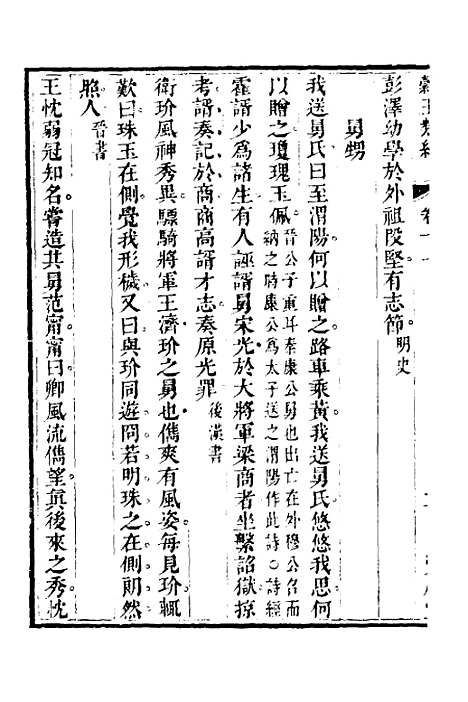 卷十一
彭澤幼學於外祖段堅有志節明史
舅甥
我送舅氏曰至渭陽何以贈之路車乘黃我送舅氏悠悠我思何
以贈之瓊瑰玉佩晉公子重耳秦康公舅也出亡在外穆公召而
納之時康公為太子送之渭陽作此詩○詩經
霍諝少為諸生有人誣諝舅宋光於大將軍梁商者坐繫詔獄掠
考諝奏記於商商高諝才志奏原光罪後漢書
衛玠風神秀異驃騎將軍王濟玠之舅也儁爽有風姿每見玠輒
歎曰珠玉在側覺我形穢又曰與玠同遊冏若明珠之在側朗然
照人晉書
王忱弱冠知名嘗造其舅范甯甯曰卿風流儁望眞後來之秀忱